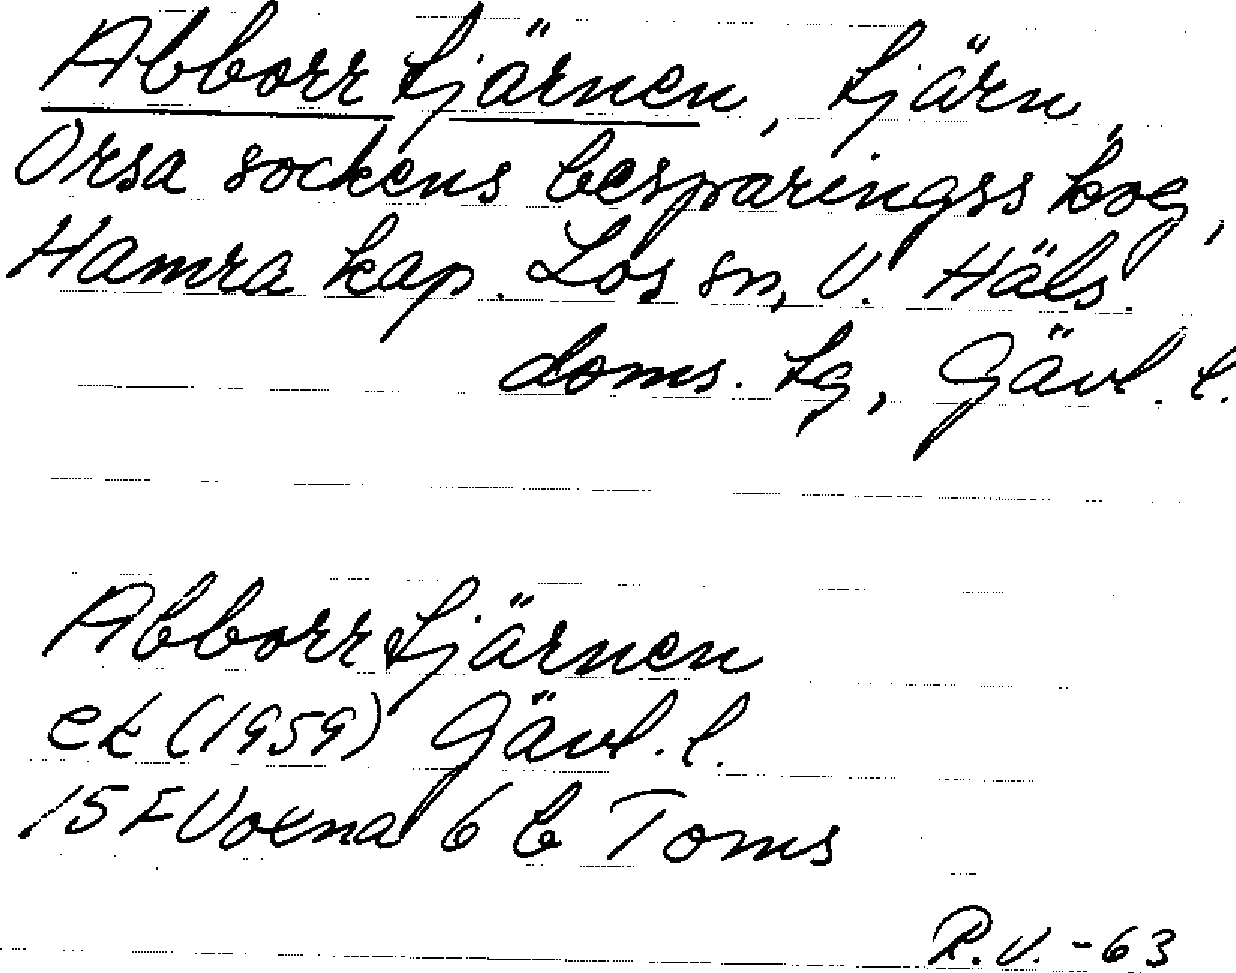 Abborrtjärnen, tjärn
Orsa sockens besparingsskog,
Hamra kap. Los sn, V. Häls.
doms. tg, Gävl. l.
Abborrtjärnen
ek (1959) Gävl. l.
15 F Voxna 6 b Toms
R.V. -63